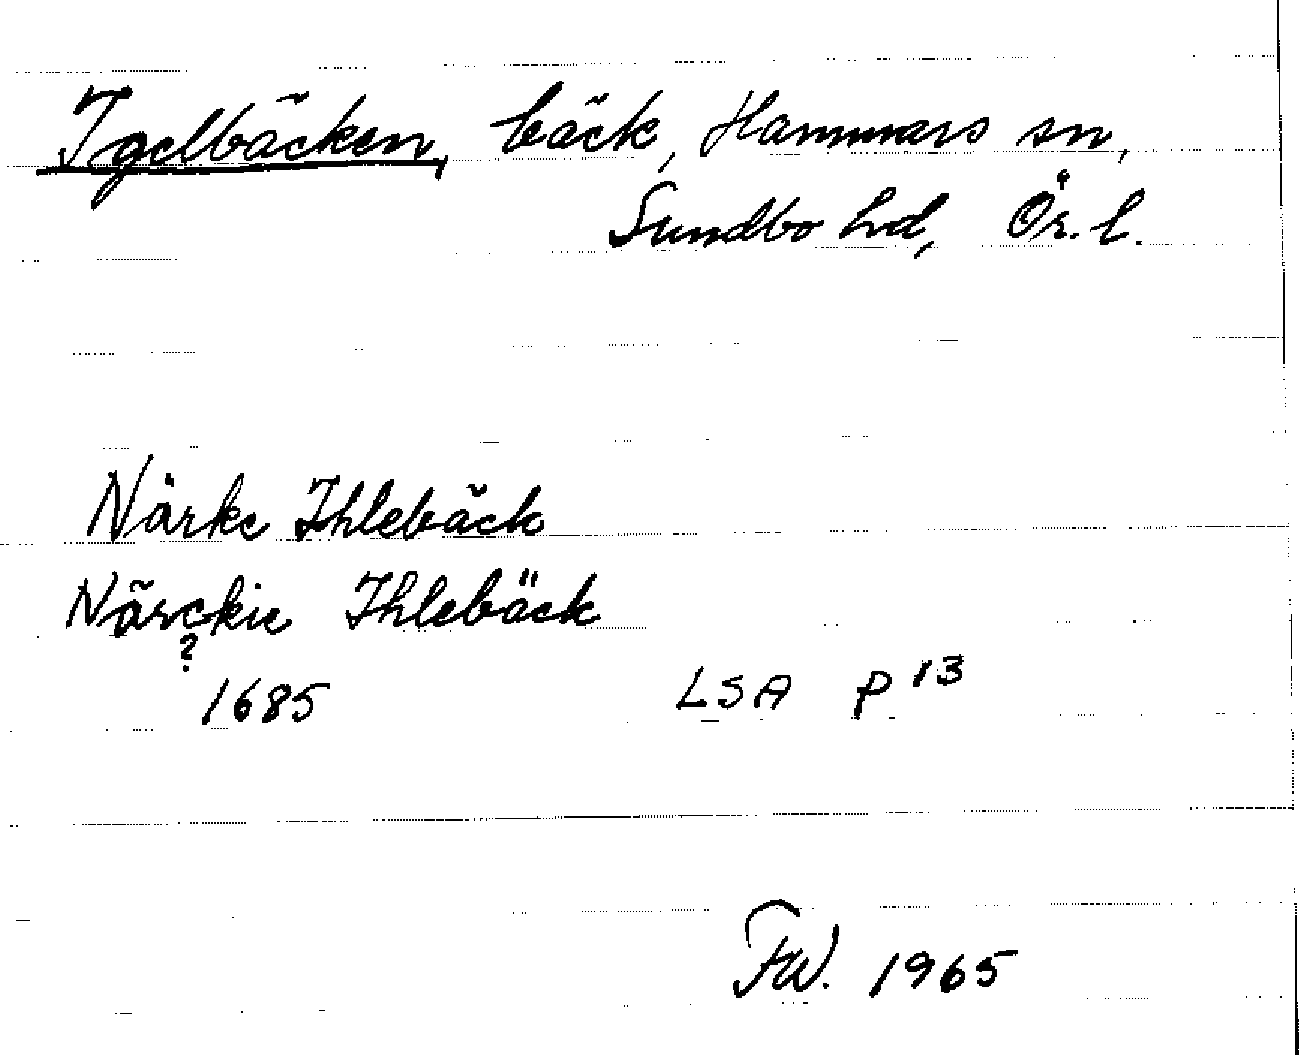 Igelbäcken, bäck, Hammars sn,
Sundbo hd, Ör. l.
Närke Ihlebäck
Närckie Ihlebäck
?
1685 LSA P 13
FW. 1965